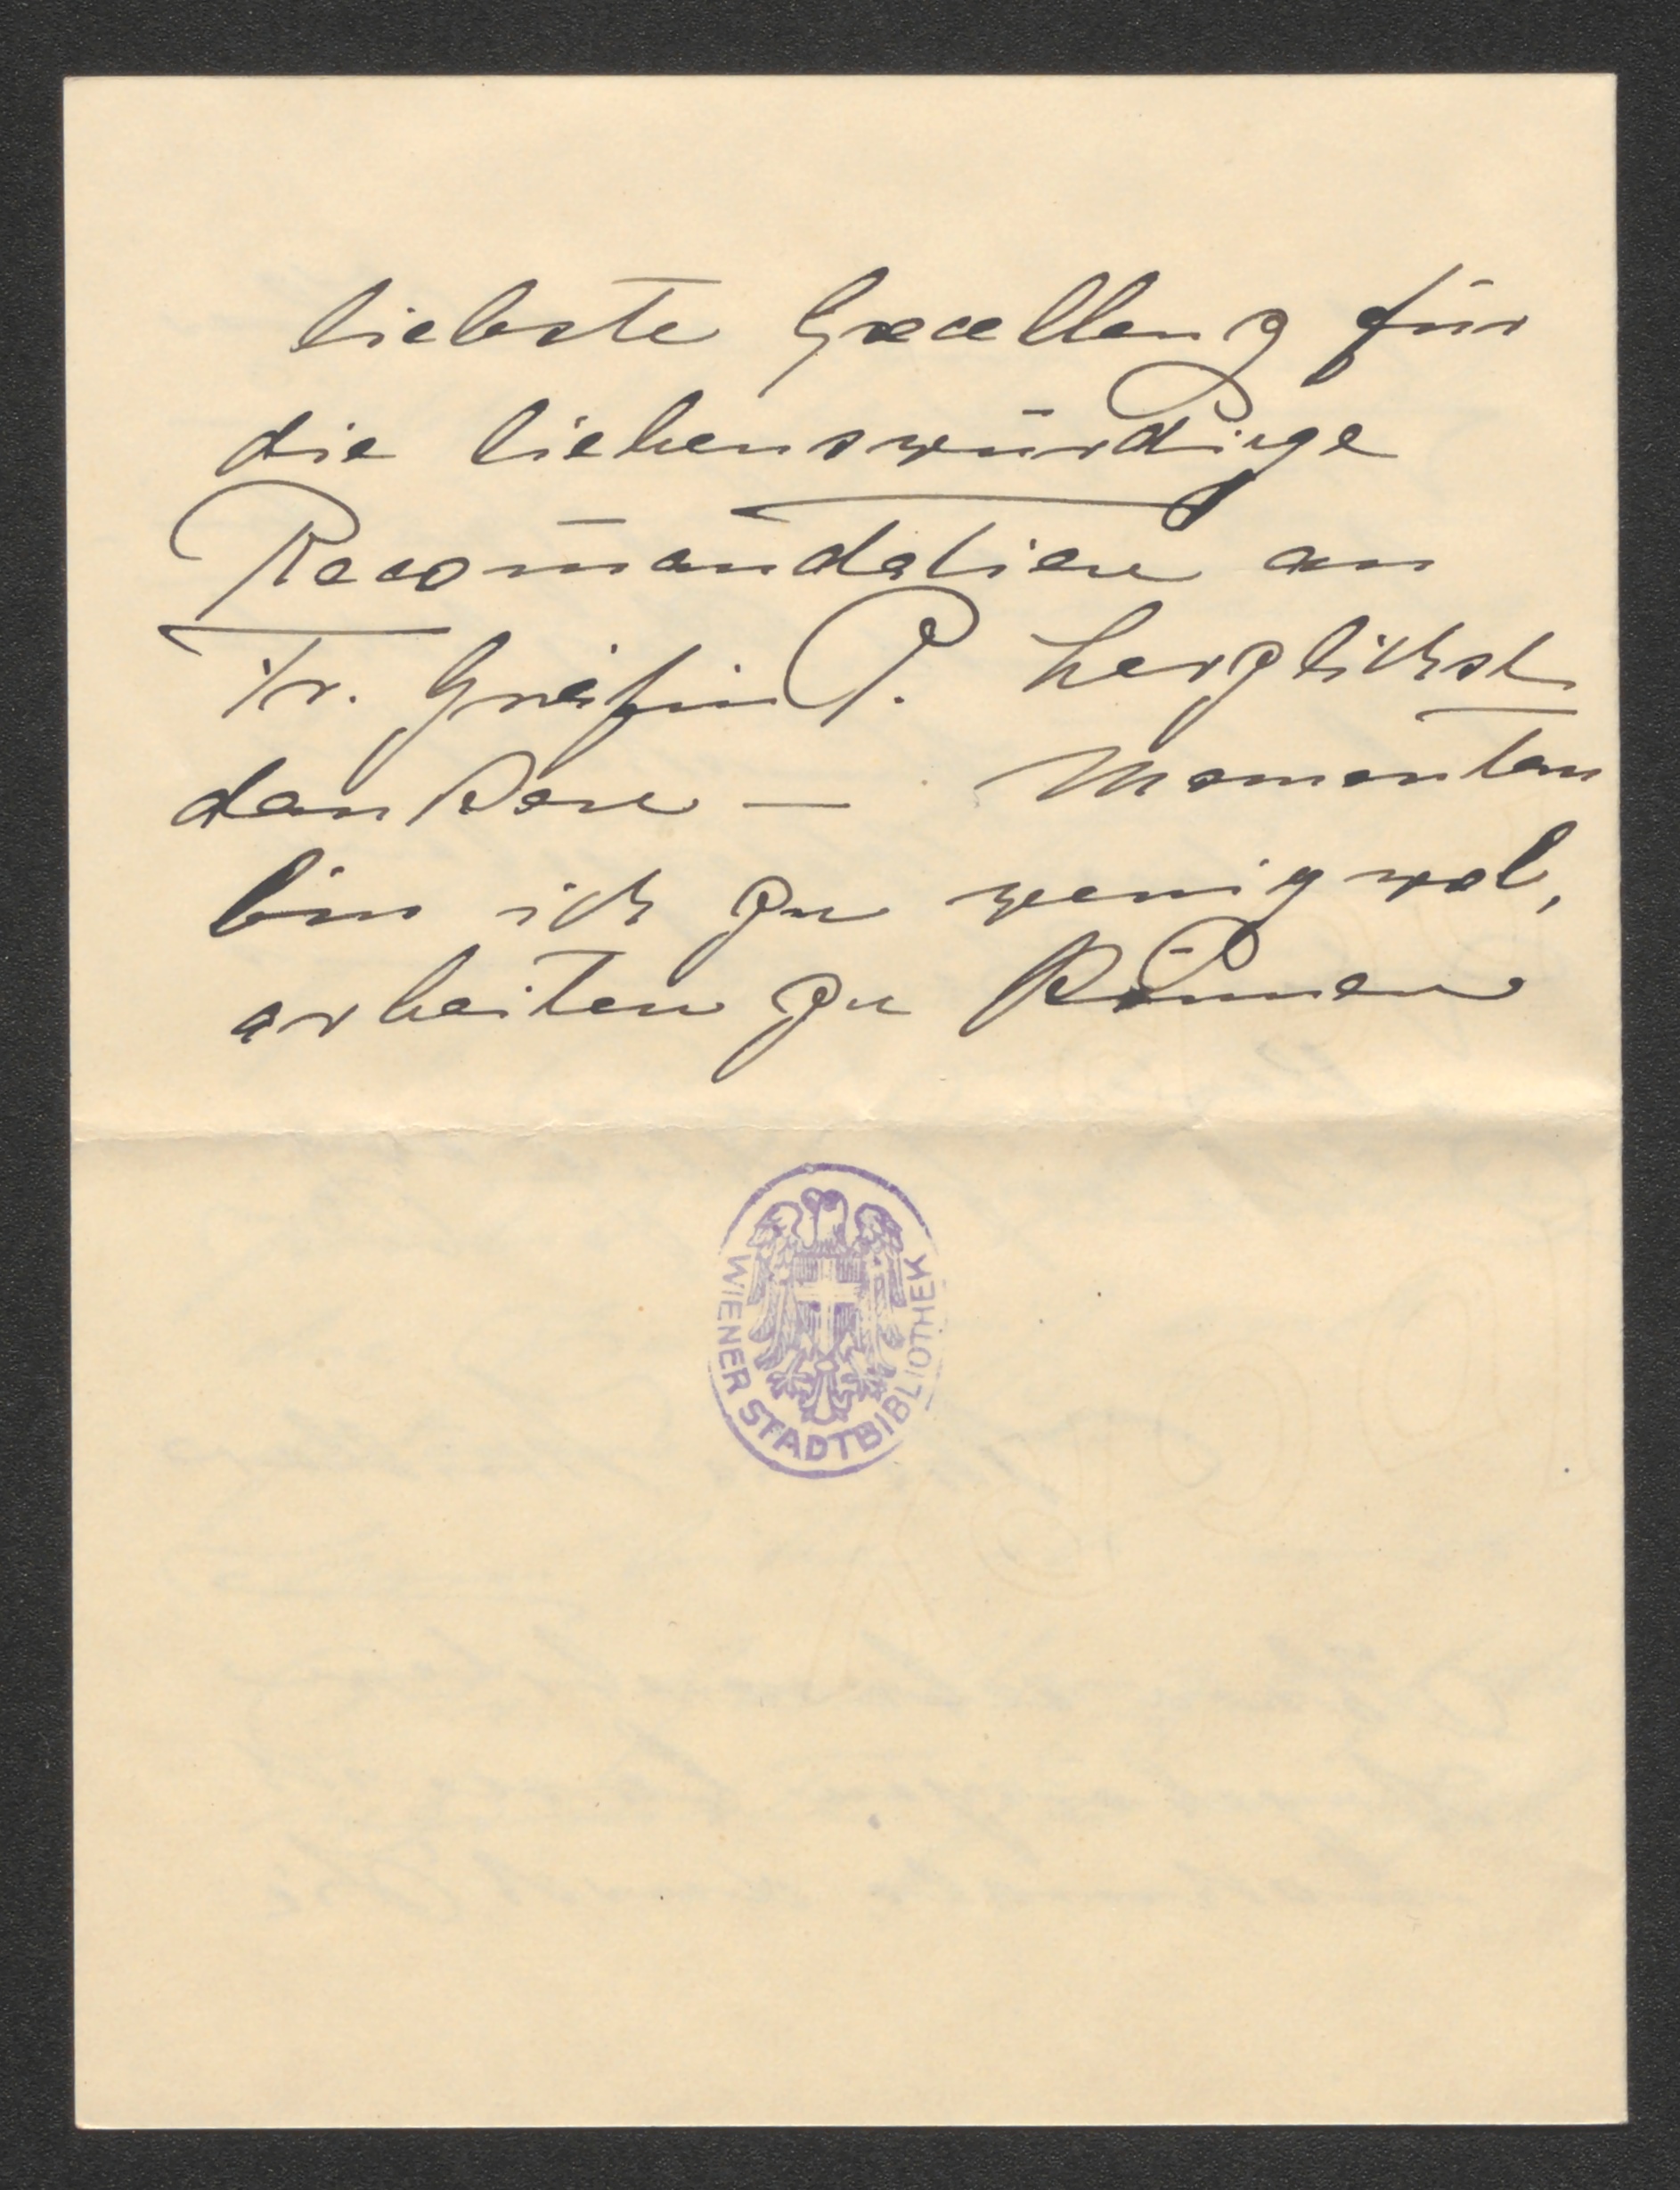 liebste Excellenz für
die liebenswürdige
Recom̅andation an
Fr. Gräfin P. herzlichst
danken — Momentan
bin ich zu wenig wol,
arbeiten zu können
WIENER STADTBIBLIOTHEK